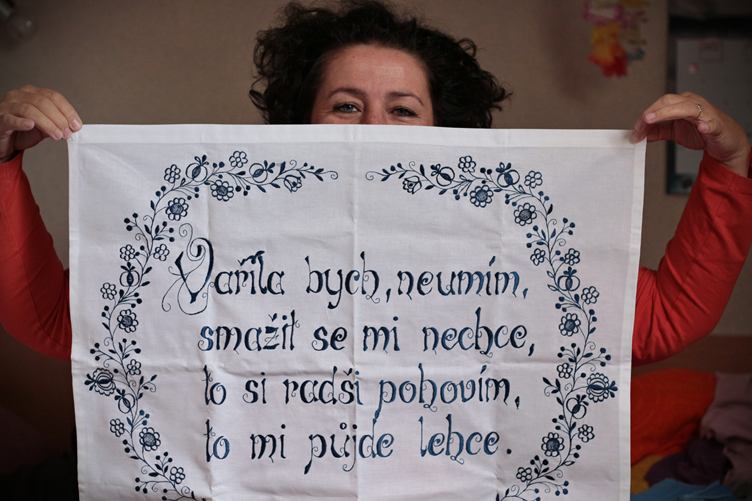 Vařila bych, neumím,
smažit se mi nechce,
to si radši pohovím,
to mi půjde lehce.